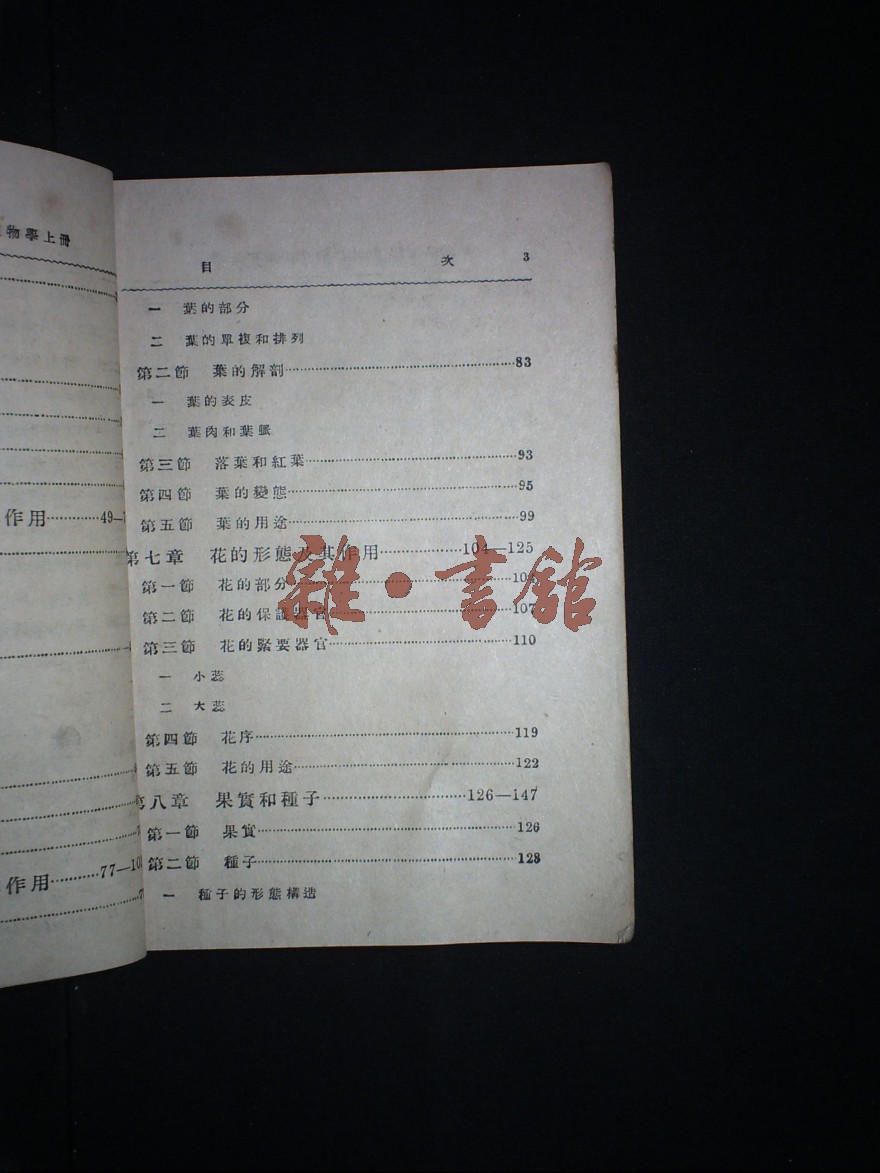 物學上冊
作用………49—
作用………77—10
目 次 3
一 葉的部分
二 葉的單複和排列
第二節 葉的解剖………83
一 葉的表皮
二 葉肉和葉脈
第三節 落葉和紅葉………93
第四節 葉的變態………95
第五節 葉的用途………99
第七章 花的形態及其作用………104—125
第一節 花的部分………10
第二節 花的保護器官………107
第三節 花的緊要器官………110
一 小蕊
二 大蕊
第四節 花序………119
第五節 花的用途………122
第八章 果實和種子………126—147
第一節 果實………126
第二節 種子………128
一 種子的形態構造
雜·書館